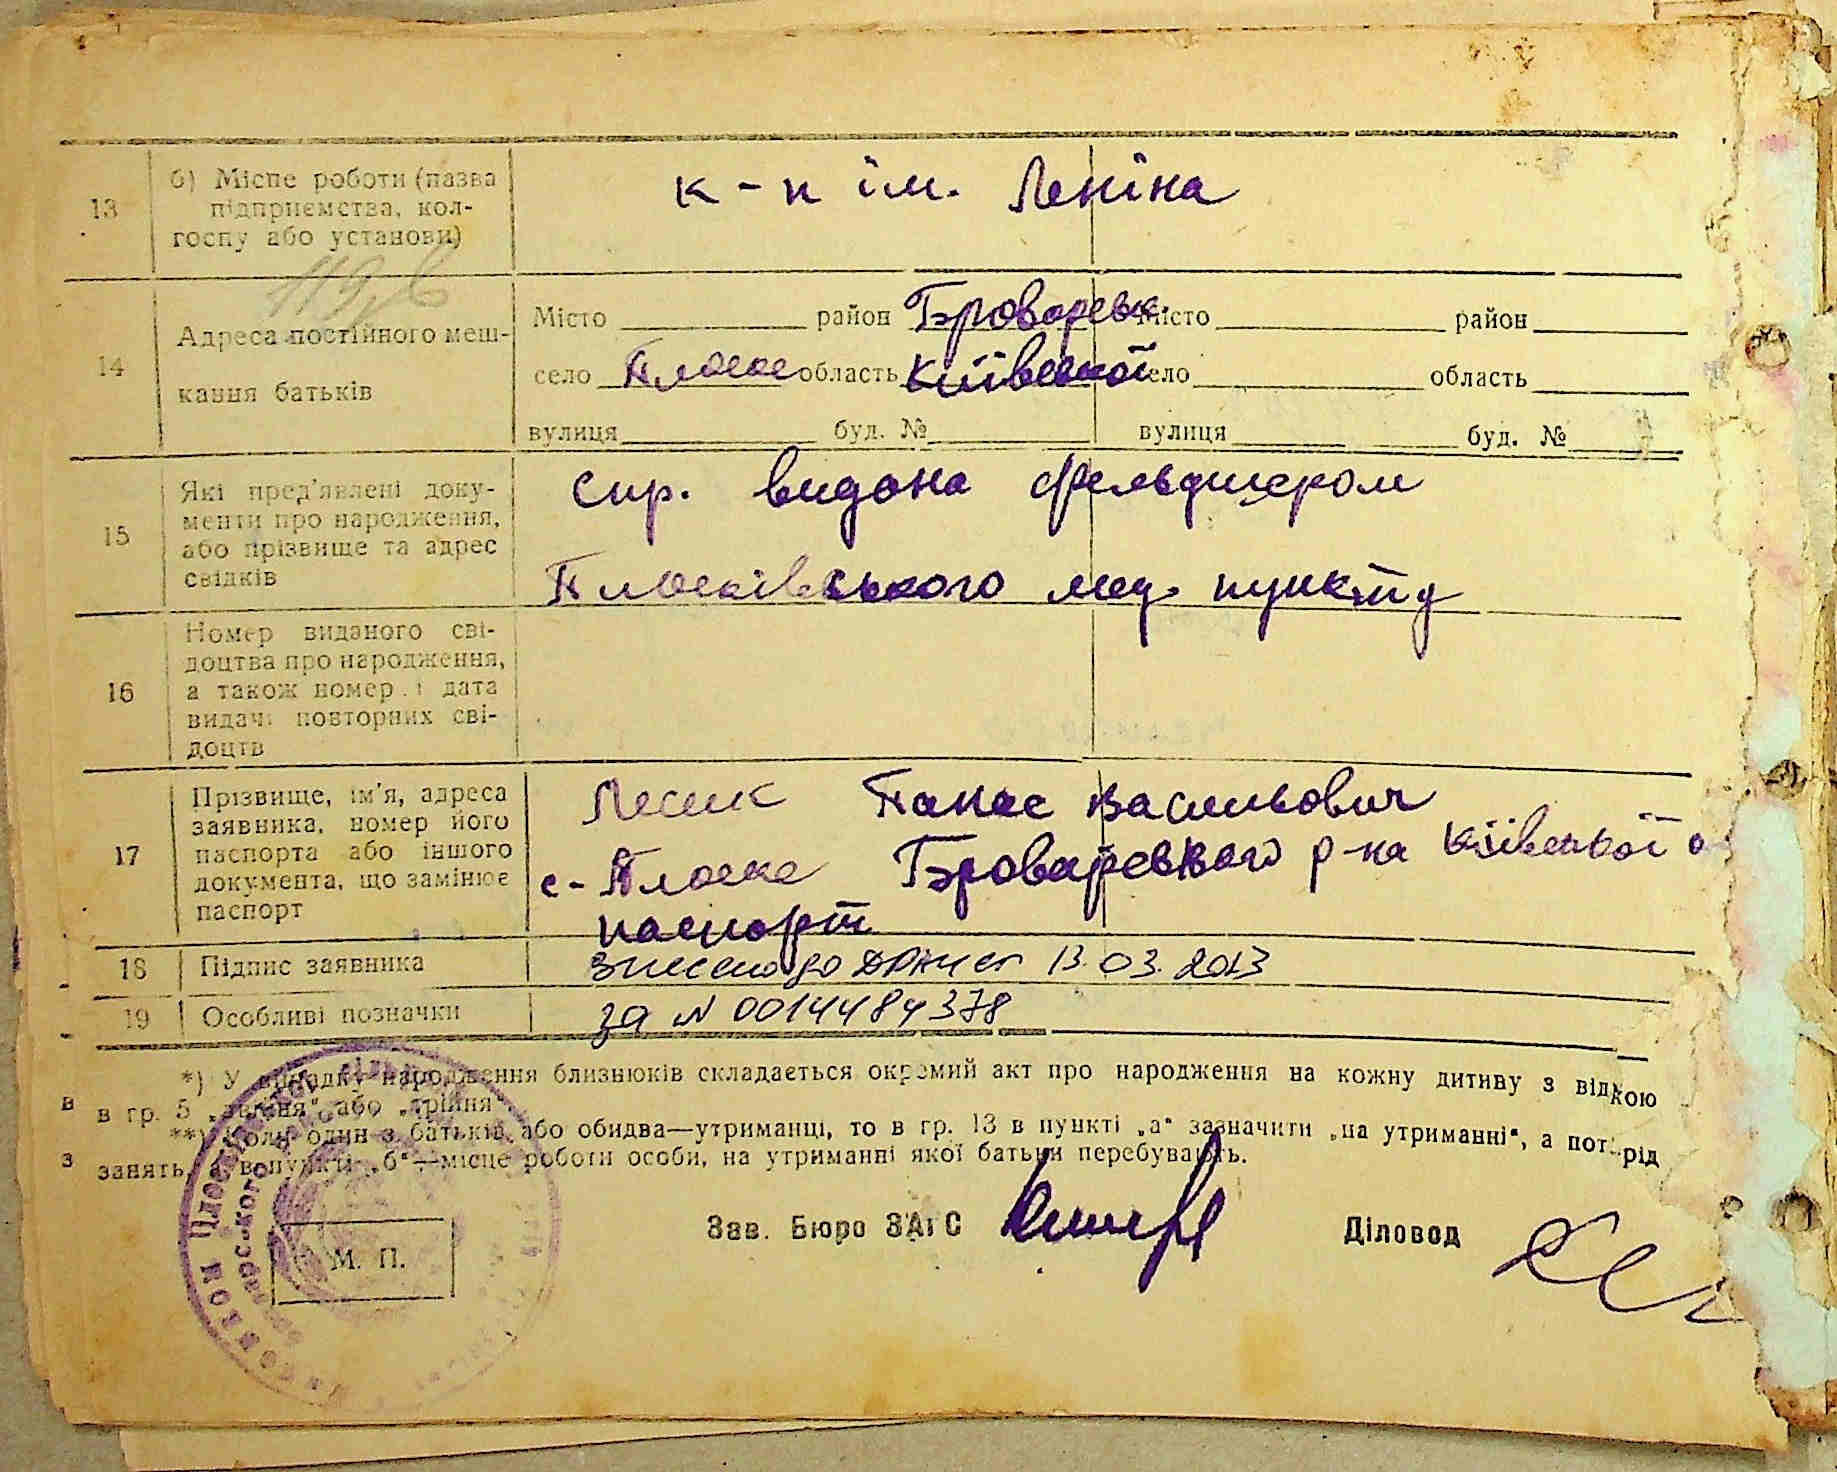 13
б) Місце роботи (назва
підприємства, кол-
госпу або установи)
к-п ім. Леніна
119
14
Адреса постійного меш-
кання батьків
Місто район Броварськ. Місто район
село Плоске область Київської село область
вулиця буд. № вулиця буд. №
15
Які пред'явлені доку-
менти про народження,
або прізвище та адрес
свідків
спр. видана фельдшером
Плосківського мед. пункту
16
Номер виданого сві-
доцтва про народження,
а також номер і дата
видачі повторних сві-
доцтв
17
Прізвище, ім'я, адреса
заявника, номер його
паспорта або іншого
документа, що замінює
паспорт
Лесик Панас Васильович
с. Плоске Броварського р-на Київської о
паспорт
18 Підпис заявника
внесено до ДРАЦСГ 13.03.2013
19 Особливі позначки
за № 0014484378
*) У випадку народження близнюків складається окремий акт про народження на кожну дитину з відкою
в в гр. 5 „двійня“ або „трійня“.
**) Коли один з батьків або обидва—утриманці, то в гр. 13 в пункті „а“ зазначити „на утриманні“, а пот рід
з занять, а в пункті „б“—місце роботи особи, на утриманні якої батьки перебувають.
Зав. Бюро ЗАГС
Діловод
М. П.